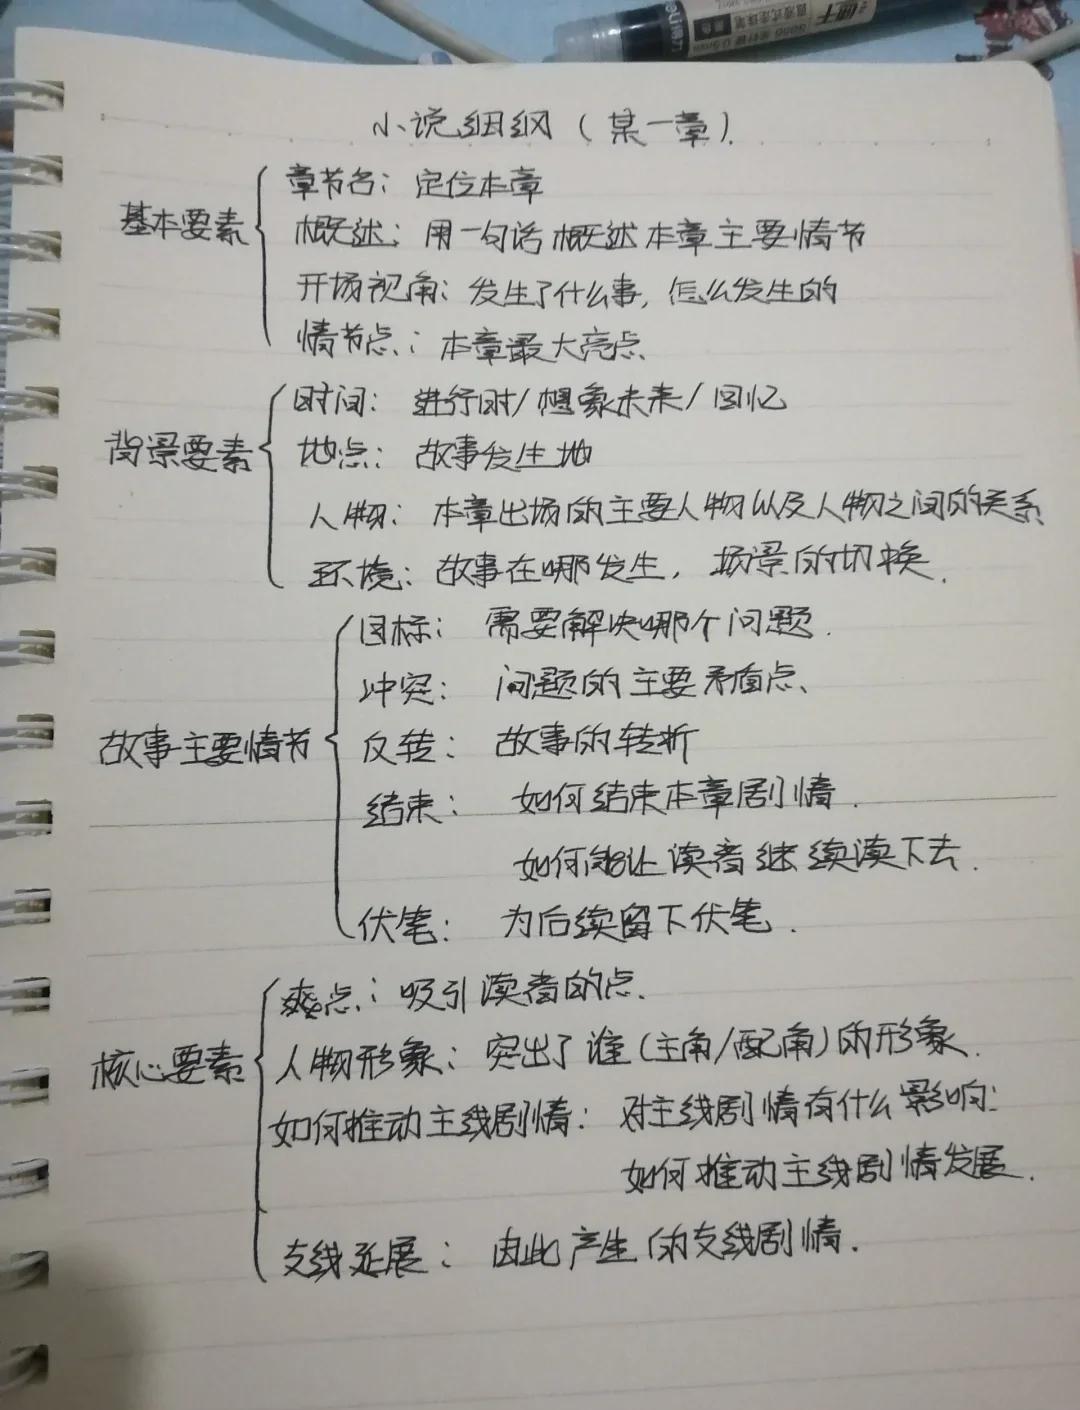 小说细纲（某一章）.
基本要素
章节名：定位本章
概述：用一句话概述本章主要情节
开场视角：发生了什么事，怎么发生的
情节点：本章最大亮点.
背景要素
时间：进行时/想象未来/回忆
地点：故事发生地
人物：本章出场的主要人物以及人物之间的关系
环境：故事在哪发生，场景的切换.
故事主要情节
目标：需要解决哪个问题.
冲突：问题的主要矛盾点、
反转：故事的转折
结束：如何结束本章剧情.
如何能让读者继续读下去.
伏笔：为后续留下伏笔.
核心要素
爽点：吸引读者的点.
人物形象：突出了谁（主角/配角）的形象.
如何推动主线剧情：对主线剧情有什么影响：
如何推动主线剧情发展.
支线延展：因此产生的支线剧情.